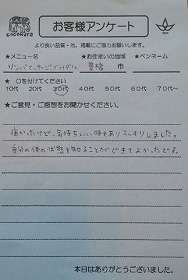 cocokara
お客様アンケート
より良い品質・他、掲載にご協力お願いします。
★メニュー名 ★お住まいの地域 ★ペンネーム
リンパマッサージブライダル 豊橋 市
★ ○を付けてください
10代 20代 30代 40代 50代 60代 70代〜
★ご意見・ご感想をお聞かせください。
痛かったけど、気持ちいい時もありスッキリしました。
自分の体の状態を知ることができてよかったです。
本日はありがとうございました。